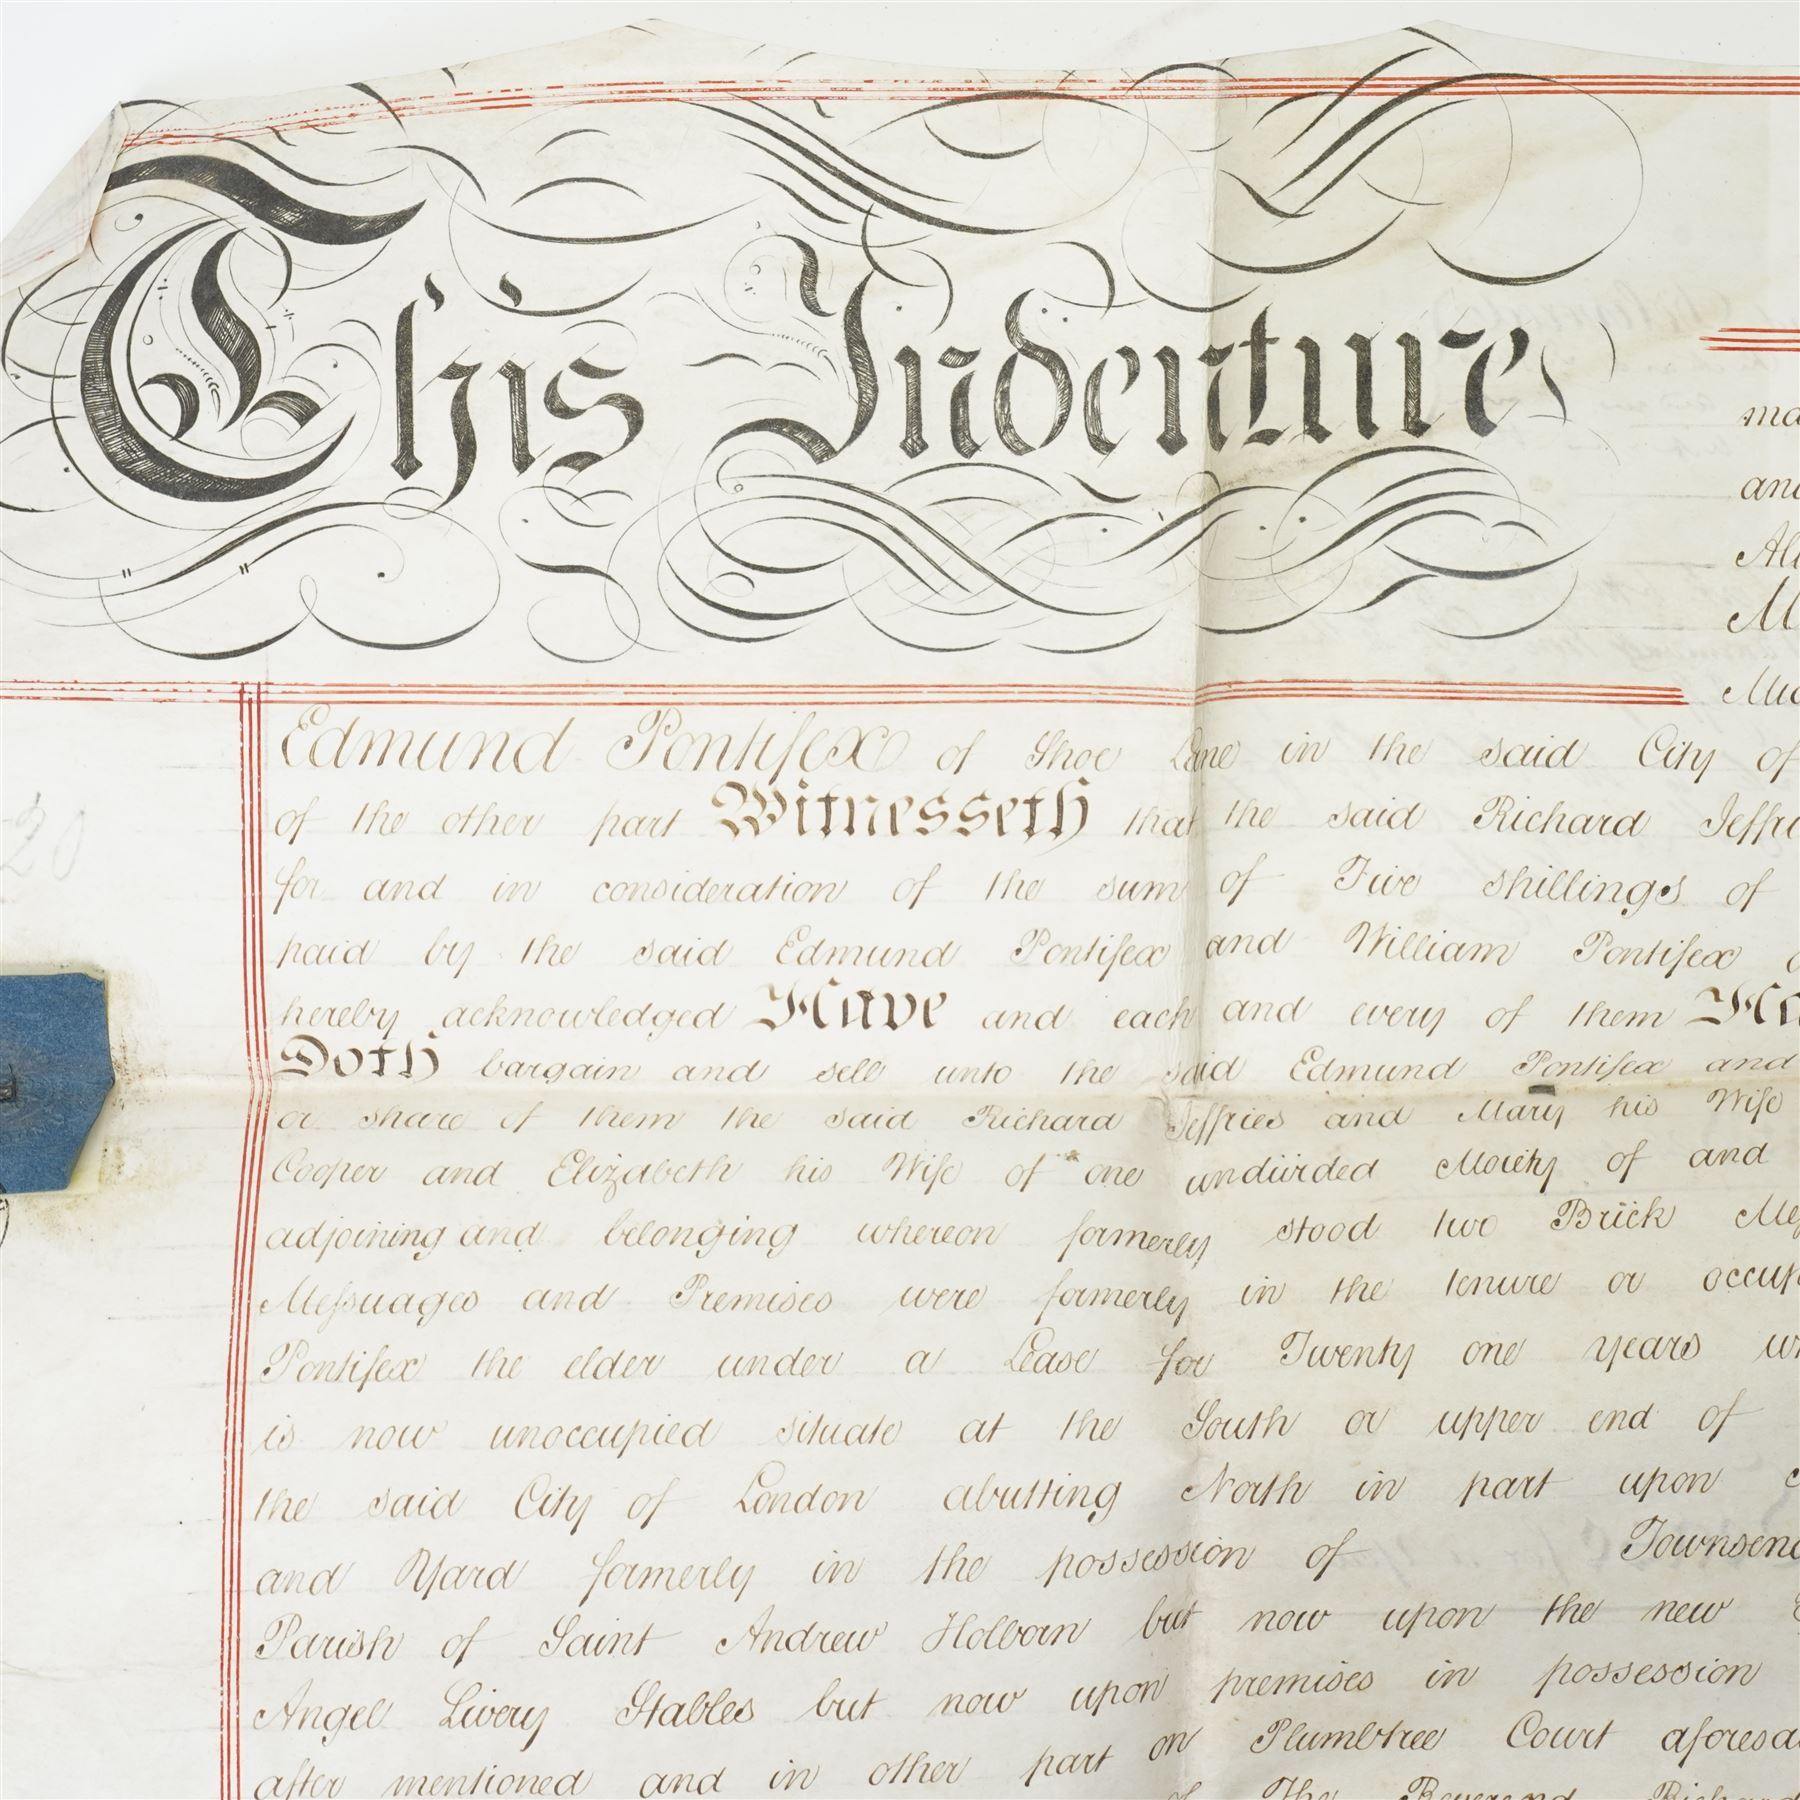 This Indenture
Edmund Pontifex of Shoe Lane in the said City of
of the other part Witnesseth that the said Richard Jeffri
for and in consideration of the sum of Five shillings of
paid by the said Edmund Pontifex and William Pontifex
hereby acknowledged Have and each and every of them Ha
Doth bargain and sell unto the said Edmund Pontifex and
or share of them the said Richard Jeffries and Mary his Wife
Cooper and Elizabeth his Wife of one undivided Moiety of and
adjoining and belonging whereon formerly stood two Brick Mes
Messuages and Premises were formerly in the tenure or occup
Pontifex the elder under a Lease for Twenty one years
is now unoccupied situate at the South or upper end of
the said City of London abutting North in part upon
and Yard formerly in the possession of Townsend
Parish of Saint Andrew Holborn but now upon the new
Angel Livery Stables but now upon premises in possession
after mentioned and in other part on Plumbtree Court aforesa
of The Reverend Richard
ma
and
Al
M
20